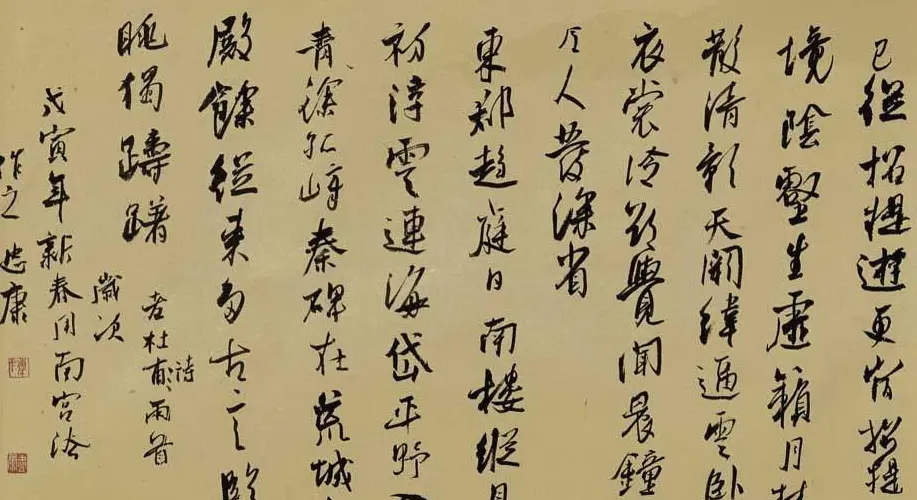 已從招提遊更宿招提
境陰壑生虛籟月林
散清影天闕緯逼雲臥
衣裳冷欲覺聞晨鐘
令人發深省
東郡趨庭日南樓縱目
初浮雲連海岱平野入
青徐孤嶂秦碑在荒城
殿餘從來多古意臨
眺獨躊躇
老杜甫詩兩首
歲次
戊寅年新春用南宮法
作之 康